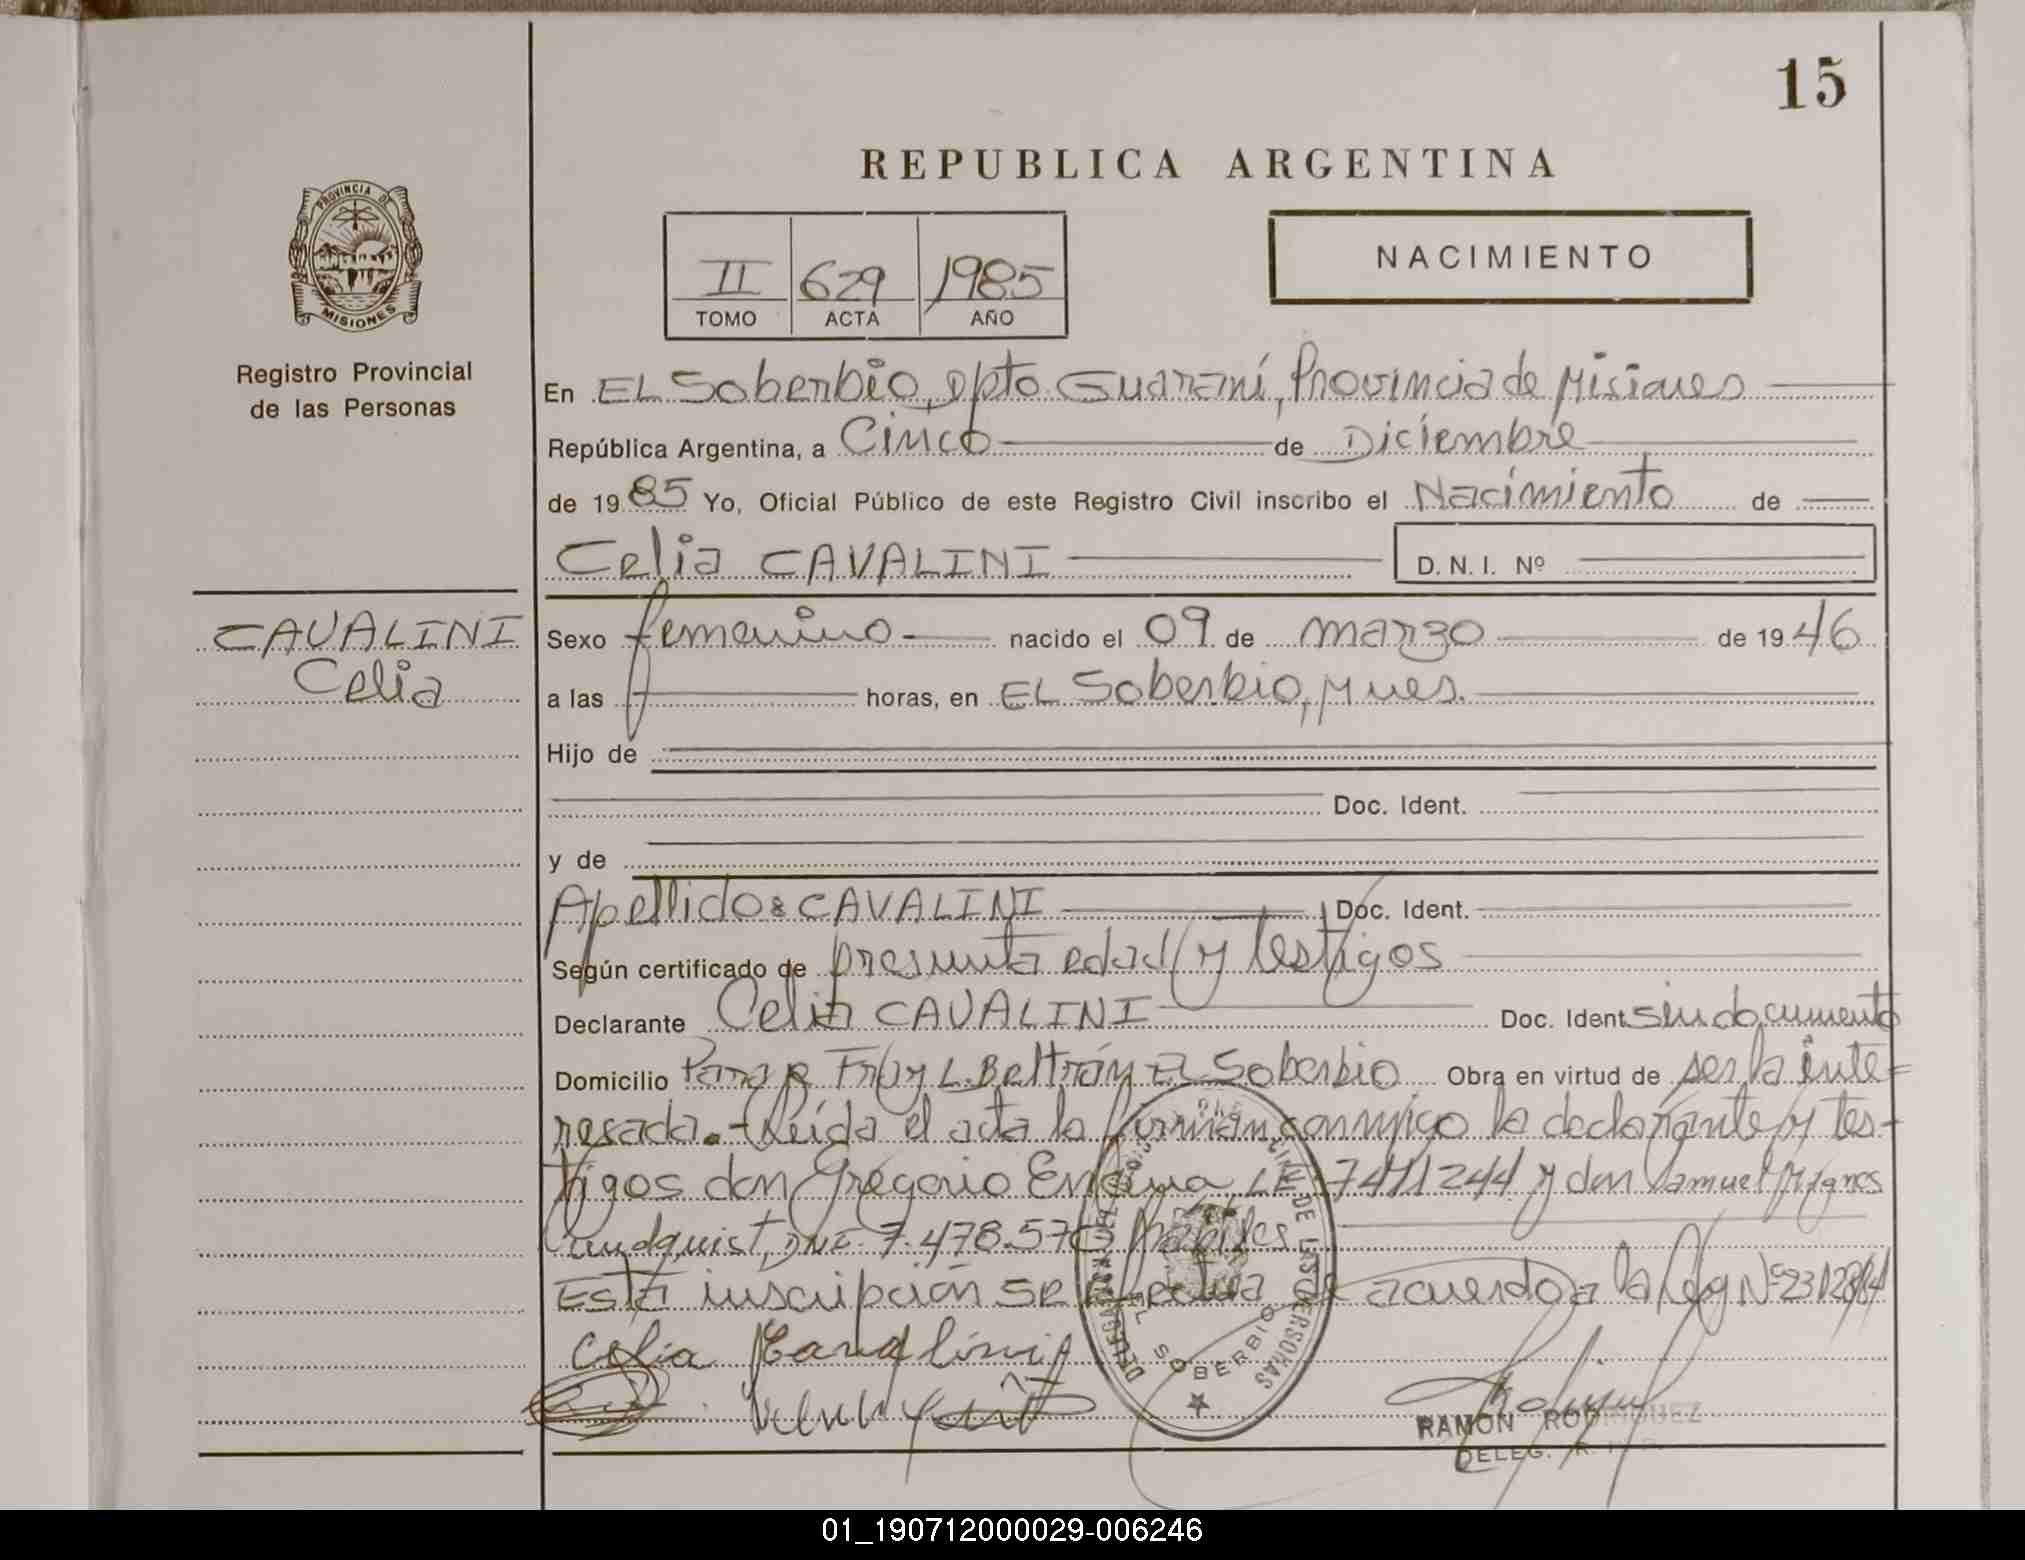 15
REPUBLICA ARGENTINA
PROVINCIA DE
MISIONES
Registro Provincial
de las Personas
II 629 1985
TOMO ACTA AÑO
NACIMIENTO
En EL Soberbio, Dpto. Guaraní, Provincia de Misiones
República Argentina, a Cinco de Diciembre
de 1985 Yo, Oficial Público de este Registro Civil inscribo el Nacimiento de
Celia CAVALINI D. N. I. Nº
CAVALINI
Celia
Sexo femenino nacido el 09 de marzo de 1946
a las horas, en EL Soberbio, Mnes.
Hijo de
Doc. Ident.
y de
Apellido: CAVALINI Doc. Ident.
Según certificado de presunta edad y testigos
Declarante Celia CAVALINI Doc. Ident. sin documento
Domicilio Fray L. Beltrán El Soberbio Obra en virtud de ser la inte=
resada.- Leída el acta la firman conmigo la declarante y tes-
tigos don Gregorio LE 7411244 y don Samuel
Lundquist, DNI. 7.478.57 hábiles
Esta inscripción se efectua de acuerdo a la Ley Nº 23128/84
Celia
DELEGACION EL SOBERBIO DE LAS PERSONAS
RAMON RODRIGUEZ
DELEG. R.
01_190712000029-006246